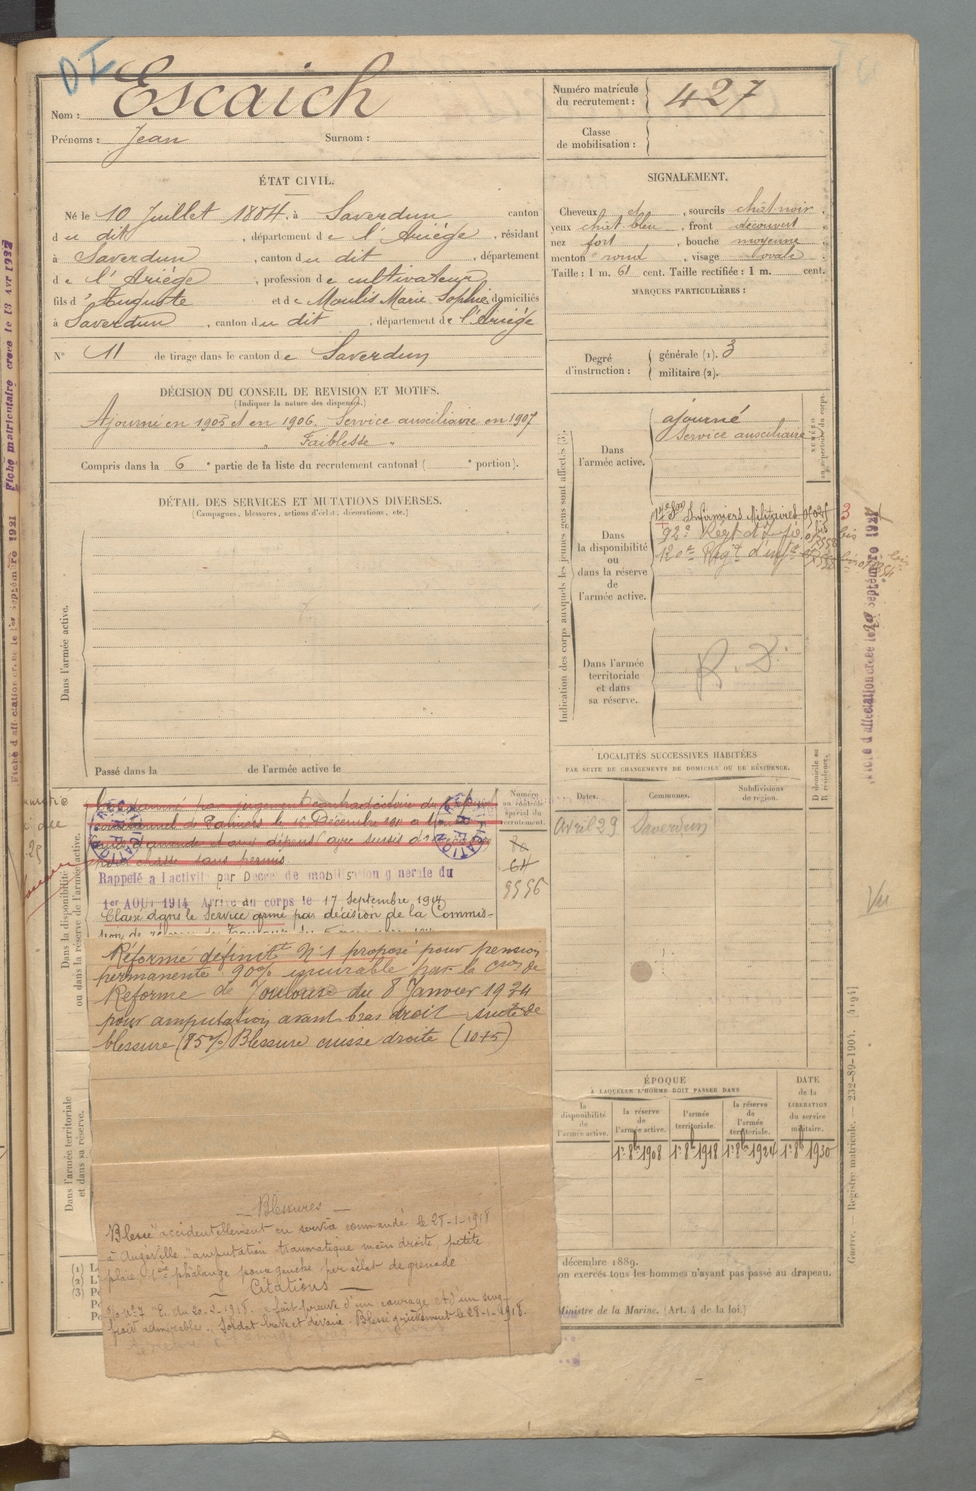 D I
Nom : Escaich
Prénoms : Jean Surnom :
Numéro matricule du recrutement : 427
Classe de mobilisation :
ÉTAT CIVIL.
Né le 10 Juillet 1884, à Saverdun canton
du dit, département de l'Ariège, résidant
à Saverdun, canton du dit, département
de l'Ariège, profession de cultivateur
fils d'Auguste et de Moulis Marie Sophie domiciliés
à Saverdun, canton du dit, département de l'Ariège
N° 11 de tirage dans le canton de Saverdun
SIGNALEMENT.
Cheveux, sourcils chât noir
yeux chât bleu, front découvert
nez fort, bouche moyenne
menton rond, visage ovale
Taille : 1 m. 61 cent. Taille rectifiée : 1 m. cent.
MARQUES PARTICULIÈRES :
Degré d'instruction : générale (1). 3
militaire (2).
DÉCISION DU CONSEIL DE REVISION ET MOTIFS.
(Indiquer la nature des dispenses.)
Ajourné en 1905 et en 1906. Service auxiliaire en 1907
"Faiblesse"
Compris dans la 6e partie de la liste du recrutement cantonal ( e portion).
DÉTAIL DES SERVICES ET MUTATIONS DIVERSES.
(Campagnes, blessures, actions d'éclat, décorations, etc.)
Dans l'armée active.
Passé dans la de l'armée active le
Indication des corps auxquels les jeunes gens sont affectés (3).
Dans l'armée active.
ajourné
Service auxiliaire
Dans la disponibilité ou dans la réserve de l'armée active.
Infirmiers Militaires
92e Regt d'Inf
120e Régt d'Infie
Dans l'armée territoriale et dans sa réserve.
R. D.
LOCALITÉS SUCCESSIVES HABITÉES
PAR SUITE DE CHANGEMENTS DE DOMICILE OU DE RÉSIDENCE.
Dates. Communes. Subdivisions de région. D domicile ou R résidence.
Avril 29 Saverdun
Dans la disponibilité ou dans la réserve de l'armée active.
Numéro au contrôle spécial du recrutement.
64
9556
Condamné par jugement contradictoire du
correctionnel de Pamiers le 15 Décembre 1911 à
amende et aux dépens (avec sursis)
chasse sans permis
Rappelé à l'activité par Décret de mobilisation générale du
1er AOUT 1914. Arrivé au corps le 17 Septembre 1914
Classé dans le Service armé par décision de la Commis-
Réforme définitt N°1 proposé pour pension
permanente 90% incurable par la Cion de
Réforme de Toulouse du 8 Janvier 1934
pour amputation avant bras droit suite de
blessure (85%) Blessure cuisse droite (10+5)
Dans l'armée territoriale et dans sa réserve.
— Blessures —
Blessé accidentellement en service commandé le 28-1-1918
à Augeville "amputation traumatique main droite, petite
plaie 1ère phalange pouce gauche par éclat de grenade
— Citations —
du 20-2-1918. a fait preuve d'un courage et d'un sang
froid admirable. Soldat brave et dévoué. Blessé grièvement le 28-1-1918.
ÉPOQUE
À LAQUELLE L'HOMME DOIT PASSER DANS
DATE de la LIBÉRATION du service militaire.
la disponibilité de l'armée active.
la réserve de l'armée active.
l'armée territoriale.
la réserve de l'armée territoriale.
1er 8bre 1908 1er 8bre 1918 1er 8bre 1924 1er 8bre 1930
décembre 1889.
on exercés tous les hommes n'ayant pas passé au drapeau.
Ministre de la Marine. (Art. 4 de la loi.)
Guerre. — Registre matricule. — 232-89-1904. [4194]
Vu